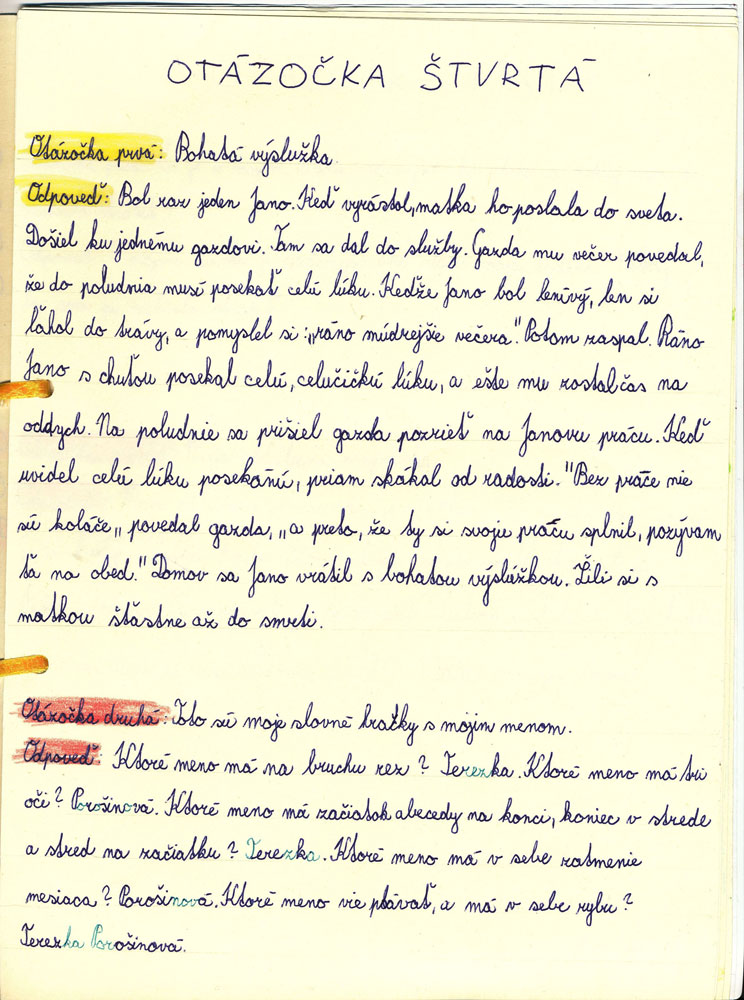 OTÁZOČKA ŠTVRTÁ
Otázočka prvá: Bohatá výslužka
Odpoveď: Bol raz jeden Jano. Keď vyrástol, matka ho poslala do sveta.
Došiel ku jednému gazdovi. Tam sa dal do služby. Gazda mu večer povedal,
že do poludnia musí posekať celú lúku. Kedže Jano bol lenivý, len si
ľahol do trávy, a pomyslel si: „ráno múdrejšie večera". Potom zaspal. Ráno
Jano s chuťou posekal celú, celučičkú lúku, a ešte mu zostal čas na
oddych. Na poludnie sa prišiel gazda pozrieť na Janovu prácu. Keď
uvidel celú lúku posekanú, priam skákal od radosti. "Bez práce nie
sú koláče„ povedal gazda, „a preto, že ty si svoju prácu splnil, pozývam
ťa na obed." Domov sa Jano vrátil s bohatou výslúžkou. Žili si s
matkou šťastne až do smrti.
Otázočka druhá: Toto sú moje slovné hračky s mojim menom.
Odpoveď: Ktoré meno má na bruchu rez? Terezka. Ktoré meno má tri
oči? Porošinová. Ktoré meno má začiatok abecedy na konci, koniec v strede
a stred na začiatku? Terezka. Ktoré meno má v sebe zatmenie
mesiaca? Porošinová. Ktoré meno vie plávať, a má v sebe rybu?
Terezka Porošinová.